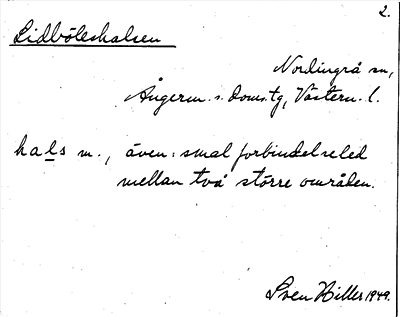 2.
Lidböleshalsen
Nordingrå sn,
Ångerm. s. doms.tg, Västern. l.
hals m., även: smal förbindelseled
mellan två större områden.
Sven Hiller 1949.